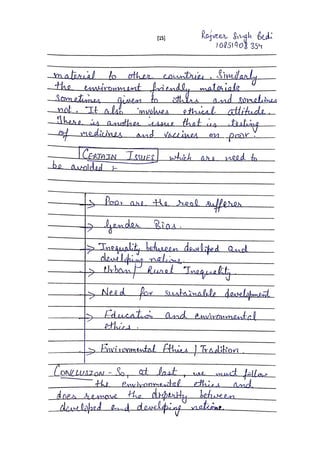 (25)
Rajveer Singh Bedi
10851908354
material to other countries. Similarly
the environment friendly materials
sometimes given to others and sometimes
not. It also involves ethical attitude.
There is another issue that is testing
of medicines and vaccines on poor.
CERTAIN ISSUES which are need to
be avoided :-
→ Poor are the real sufferer
→ Gender Bias.
→ Inequality between developed and
developing nations.
→ Urban / Rural Inequality.
→ Need for sustainable development
→ Education and environmental
ethics.
→ Environmental Ethics / Tradition.
CONCLUSION - So, at last, we must follow
the environmental ethics and
does remove the disparity between
developed and developing nations.